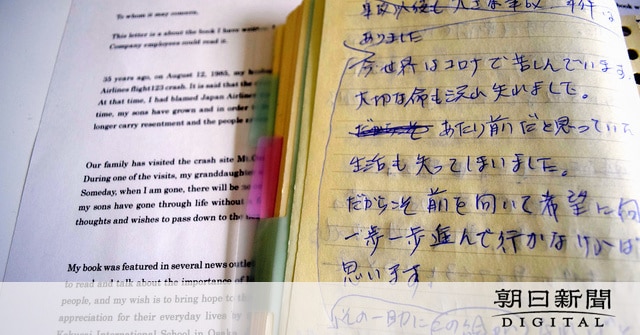 To whom it may concern,
This letter is a about the book I have
Company employees could read it.
35 years ago, on August 12, 1985, my
Airlines flight123 crash. It is said that the
At that time, I had blamed Japan
time, my sons have grown and in order
longer carry resentment and the people
Our family has visited the crash site
During one of the visits, my
Someday, when I am gone, there will be
my sons have gone through life without
thoughts and wishes to pass down to the
My book was featured in several news
to read and talk about the importance of
people, and my wish is to bring hope to
appreciation for their everyday lives
International School in Osaka
ありました
今世界はコロナで苦しんでいます
大切な命も沢山失れました。
あたり前だと思っていた
生活も失ってしまいました。
だからこそ前を向いて希望に向
一歩一歩進んで行かなければ
思います
朝日新聞
DIGITAL